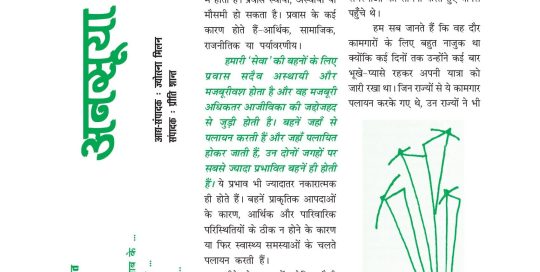 अनसूया
आद्य-संपादक : ज्योत्स्ना मिलन
संपादक : प्रीति शान्त
में होता है। प्रवास स्थायी, अस्थायी या
मौसमी हो सकता है। प्रवास के कई
कारण होते हैं–आर्थिक, सामाजिक,
राजनीतिक या पर्यावरणीय।
हमारी 'सेवा' की बहनों के लिए
प्रवास सदैव अस्थायी और
मजबूरीवश होता है और वह मजबूरी
अधिकतर आजीविका की जद्दोजहद
से जुड़ी होती है। बहनें जहाँ से
पलायन करती हैं और जहाँ पलायित
होकर जाती हैं, उन दोनों जगहों पर
सबसे ज्यादा प्रभावित बहनें ही होती
हैं। ये प्रभाव भी ज्यादातर नकारात्मक
ही होते हैं। बहनें प्राकृतिक आपदाओं
के कारण, आर्थिक और पारिवारिक
परिस्थितियों के ठीक न होने के कारण
या फिर स्वास्थ्य समस्याओं के चलते
पलायन करती हैं।
पहुँचे थे।
हम सब जानते हैं कि वह दौर
कामगारों के लिए बहुत नाजुक था
क्योंकि कई दिनों तक उन्होंने कई बार
भूखे-प्यासे रहकर अपनी यात्रा को
जारी रखा था। जिन राज्यों से ये कामगार
पलायन करके गए थे, उन राज्यों ने भी